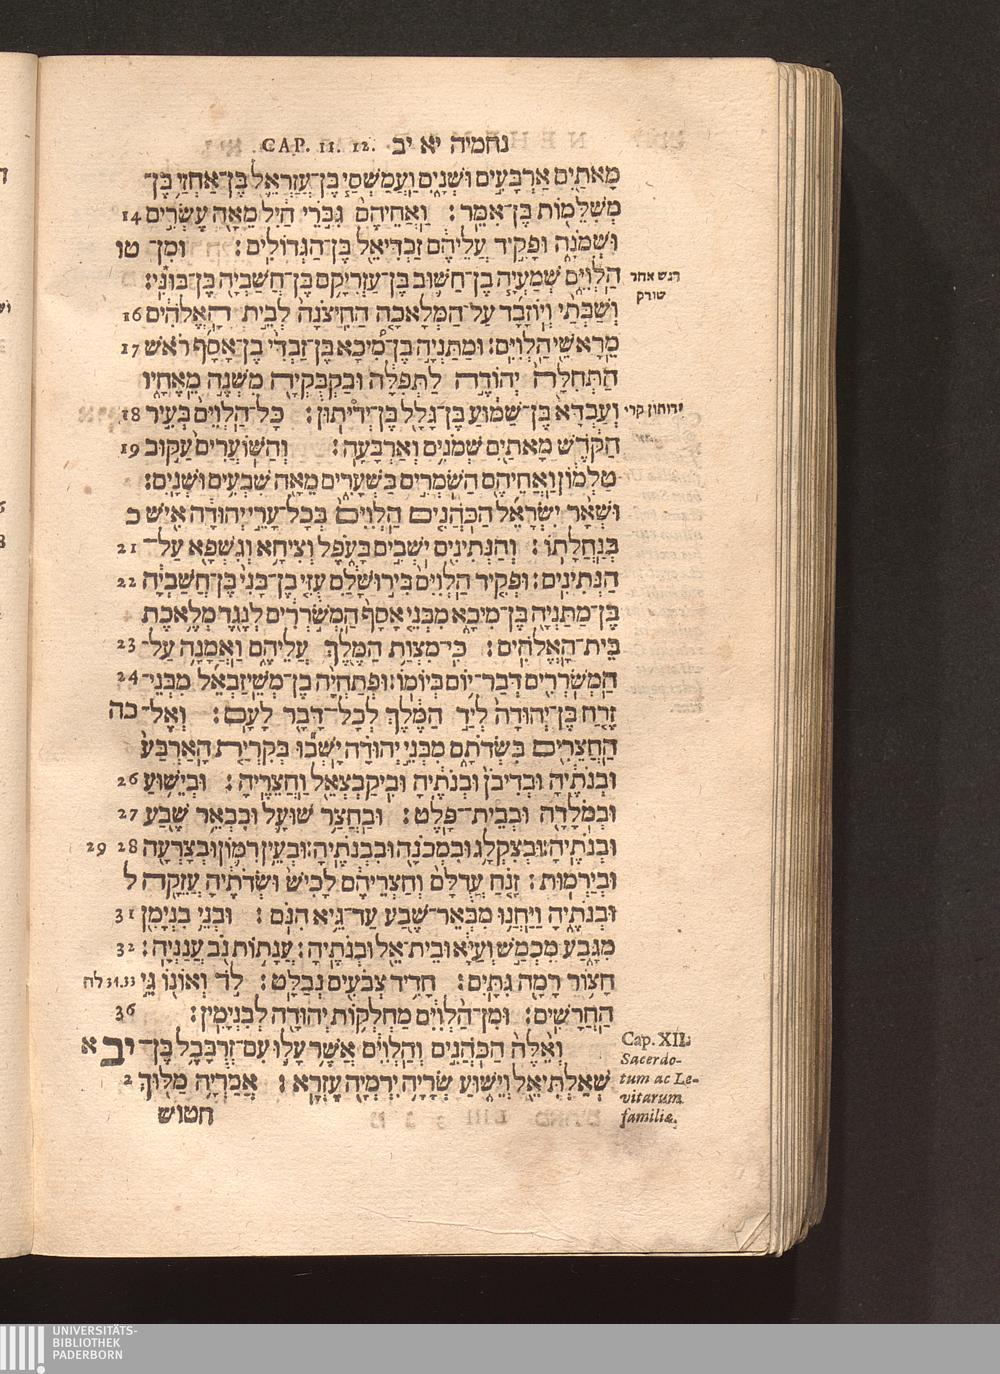 CAP. 11. 12. נחמיה יא יב
מָאתַיִם אַרְבָּעִים וּשְׁנָיִם וַעֲמַשְׁסַי בֶּן־עֲזַרְאֵל בֶּן־אַחְזַי בֶּן־
מְשִׁלֵּמוֹת בֶּן־אִמֵּר׃ וַאֲחֵיהֶם גִּבֹּרֵי חַיִל מֵאָה עֶשְׂרִים 14
וּשְׁמֹנָה וּפָקִיד עֲלֵיהֶם זַבְדִּיאֵל בֶּן־הַגְּדוֹלִים׃ וּמִן־ טו
הַלְוִיִּם שְׁמַעְיָה בֶן־חַשּׁוּב בֶּן־עַזְרִיקָם בֶּן־חֲשַׁבְיָה בֶּן־בּוּנִּי׃
דגש אחר
שורק
וְשַׁבְּתַי וְיוֹזָבָד עַל־הַמְּלָאכָה הַחִיצֹנָה לְבֵית הָאֱלֹהִים 16
מֵרָאשֵׁי הַלְוִיִּם׃ וּמַתַּנְיָה בֶן־מִיכָא בֶּן־זַבְדִּי בֶן־אָסָף רֹאשׁ 17
הַתְּחִלָּה יְהוֹדֶה לַתְּפִלָּה וּבַקְבֻּקְיָה מִשְׁנֶה מֵאֶחָיו
וְעַבְדָּא בֶּן־שַׁמּוּעַ בֶּן־גָּלָל בֶּן־יְדִיתוּן׃ כָּל־הַלְוִיִּם בְּעִיר 18
ידותון קרי
הַקֹּדֶשׁ מָאתַיִם שְׁמֹנִים וְאַרְבָּעָה׃ וְהַשּׁוֹעֲרִים עַקּוּב 19
טַלְמוֹן וַאֲחֵיהֶם הַשֹּׁמְרִים בַּשְּׁעָרִים מֵאָה שִׁבְעִים וּשְׁנָיִם׃
וּשְׁאָר יִשְׂרָאֵל הַכֹּהֲנִים הַלְוִיִּם בְּכָל־עָרֵי יְהוּדָה אִישׁ כ
בְּנַחֲלָתוֹ׃ וְהַנְּתִינִים יֹשְׁבִים בָּעֹפֶל וְצִיחָא וְגִשְׁפָּא עַל־ 21
הַנְּתִינִים׃ וּפְקִיד הַלְוִיִּם בִּירוּשָׁלִַם עֻזִּי בֶן־בָּנִי בֶּן־חֲשַׁבְיָה 22
בֶּן־מַתַּנְיָה בֶּן־מִיכָא מִבְּנֵי אָסָף הַמְשֹׁרְרִים לְנֶגֶד מְלֶאכֶת
בֵּית־הָאֱלֹהִים׃ כִּי־מִצְוַת הַמֶּלֶךְ עֲלֵיהֶם וַאֲמָנָה עַל־ 23
הַמְשֹׁרְרִים דְּבַר־יוֹם בְּיוֹמוֹ׃ וּפְתַחְיָה בֶּן־מְשֵׁיזַבְאֵל מִבְּנֵי־ 24
זֶרַח בֶּן־יְהוּדָה לְיַד הַמֶּלֶךְ לְכָל־דָּבָר לָעָם׃ וְאֶל־ כה
הַחֲצֵרִים בִּשְׂדֹתָם מִבְּנֵי יְהוּדָה יָשְׁבוּ בְּקִרְיַת הָאַרְבַּע
וּבְנֹתֶיהָ וּבְדִיבֹן וּבְנֹתֶיהָ וּבִיקַבְצְאֵל וַחֲצֵרֶיהָ׃ וּבְיֵשׁוּעַ 26
וּבְמוֹלָדָה וּבְבֵית־פָּלֶט׃ וּבַחֲצַר שׁוּעָל וּבִבְאֵר שֶׁבַע 27
וּבְנֹתֶיהָ׃ וּבְצִקְלַג וּבִמְכֹנָה וּבִבְנֹתֶיהָ׃ וּבְעֵין רִמּוֹן וּבְצָרְעָה 28 29
וּבְיַרְמוּת׃ זָנֹחַ עֲדֻלָּם וְחַצְרֵיהֶם לָכִישׁ וּשְׂדֹתֶיהָ עֲזֵקָה ל
וּבְנֹתֶיהָ וַיַּחֲנוּ מִבְּאֵר־שֶׁבַע עַד־גֵּיא הִנֹּם׃ וּבְנֵי בִנְיָמִן 31
מִגָּבַע מִכְמָשׂ וְעַיָּא וּבֵית־אֵל וּבְנֹתֶיהָ׃ עֲנָתוֹת נֹב עֲנָנְיָה׃ 32
חָצוֹר רָמָה גִּתָּיִם׃ חָדִיד צְבֹעִים נְבַלָּט׃ לֹד וְאוֹנוֹ גֵּי 34.33 לה
הַחֲרָשִׁים׃ וּמִן־הַלְוִיִּם מַחְלְקוֹת יְהוּדָה לְבִנְיָמִין׃ 36
וְאֵלֶּה הַכֹּהֲנִים וְהַלְוִיִּם אֲשֶׁר עָלוּ עִם־זְרֻבָּבֶל בֶּן־ יב א
שְׁאַלְתִּיאֵל וְיֵשׁוּעַ שְׂרָיָה יִרְמְיָה עֶזְרָא׃ אֲמַרְיָה מַלּוּךְ 2
Cap. XII.
Sacerdo-
tum ac Le-
vitarum
familiæ.
חטוש
UNIVERSITÄTS-
BIBLIOTHEK
PADERBORN